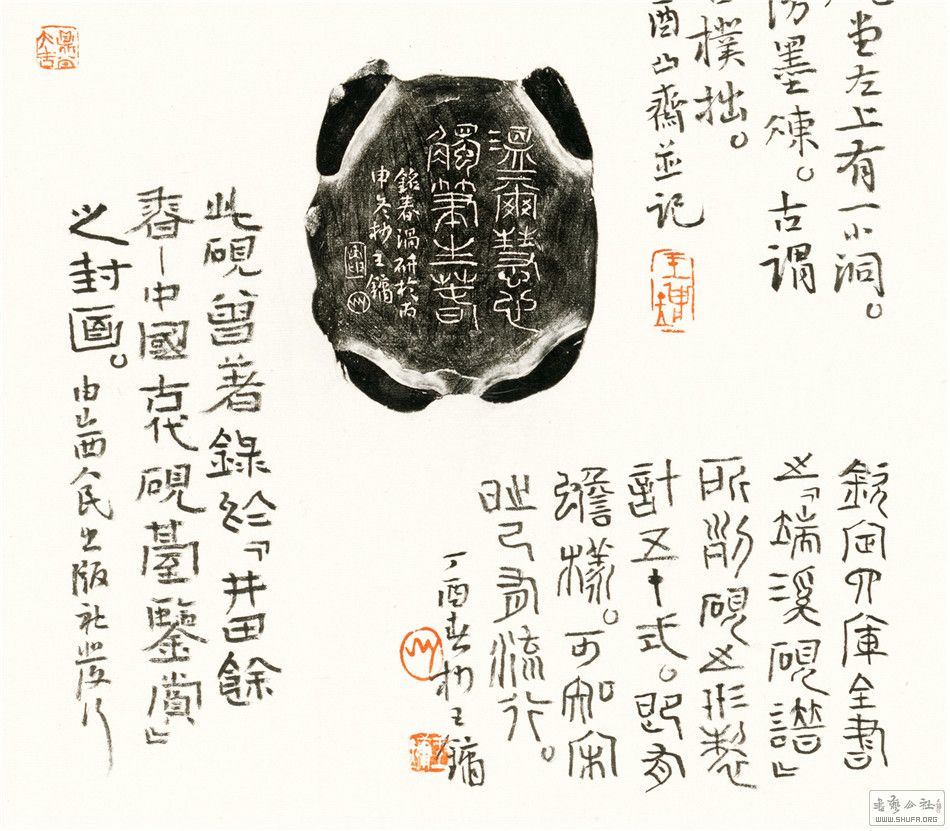 堂左上有一小洞。
墨煉。古謂
樸拙。
酉山齋並記
溫爾慧心
觸筆生春
銘春渦研於丙
申冬杪王鏞
欽定四庫全書
之『端溪硯譜』
所列硯之形製
計五十式。即有
蟾樣。可知宋
時已有流行。
丁酉春杪王鏞
此硯曾著錄於『井田餘
春—中國古代硯臺鑒賞』
之封面。由山西人民出版社發行
書藝公社
WWW.SHUFA.ORG